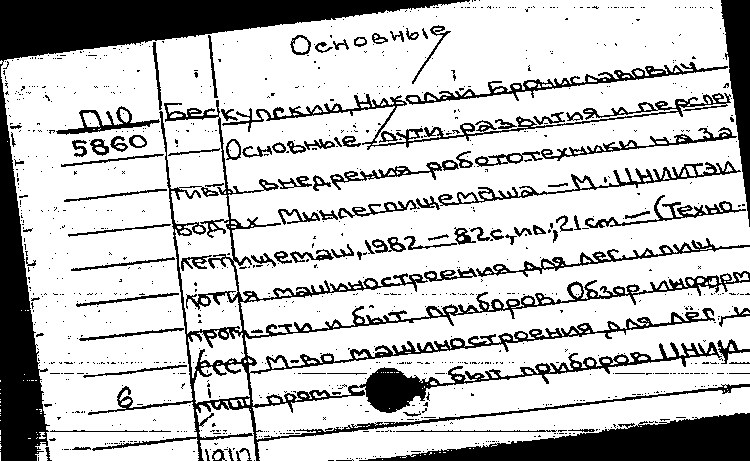 Основные
П10
5860
Бескупский, Николай Брониславович
Основные пути развития и перспек
тивы внедрения робототехники на за
водах Минлегпищемаша. — М.: ЦНИИТЭИ
легпищемаш, 1982 — 82 с., ил.; 21 см. — (Техно
логия машиностроения для лег. и пищ.
пром-сти и быт. приборов. Обзор. информ
СССР М-во машиностроения для лег. и
6
пищ. пром-сти и быт. приборов ЦНИИ